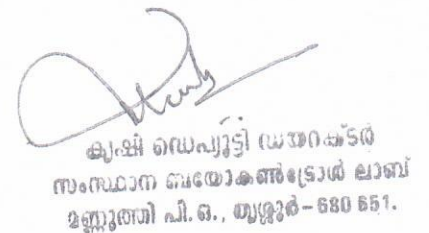 കൃഷി ഡെപ്യൂട്ടി ഡയറക്ടർ
സംസ്ഥാന ബയോകൺട്രോൾ ലാബ്
മണ്ണുത്തി പി.ഒ., തൃശ്ശൂർ-680 651.